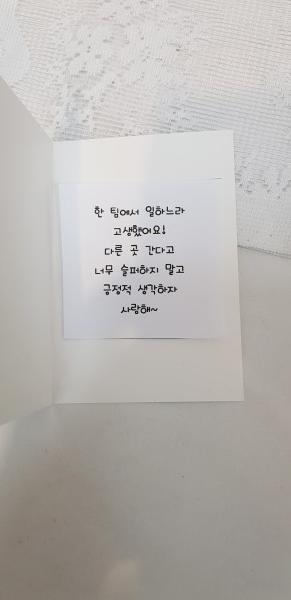 한 팀에서 일하느라
고생했어요!
다른 곳 간다고
너무 슬퍼하지 말고
긍정적 생각하자
사랑해~